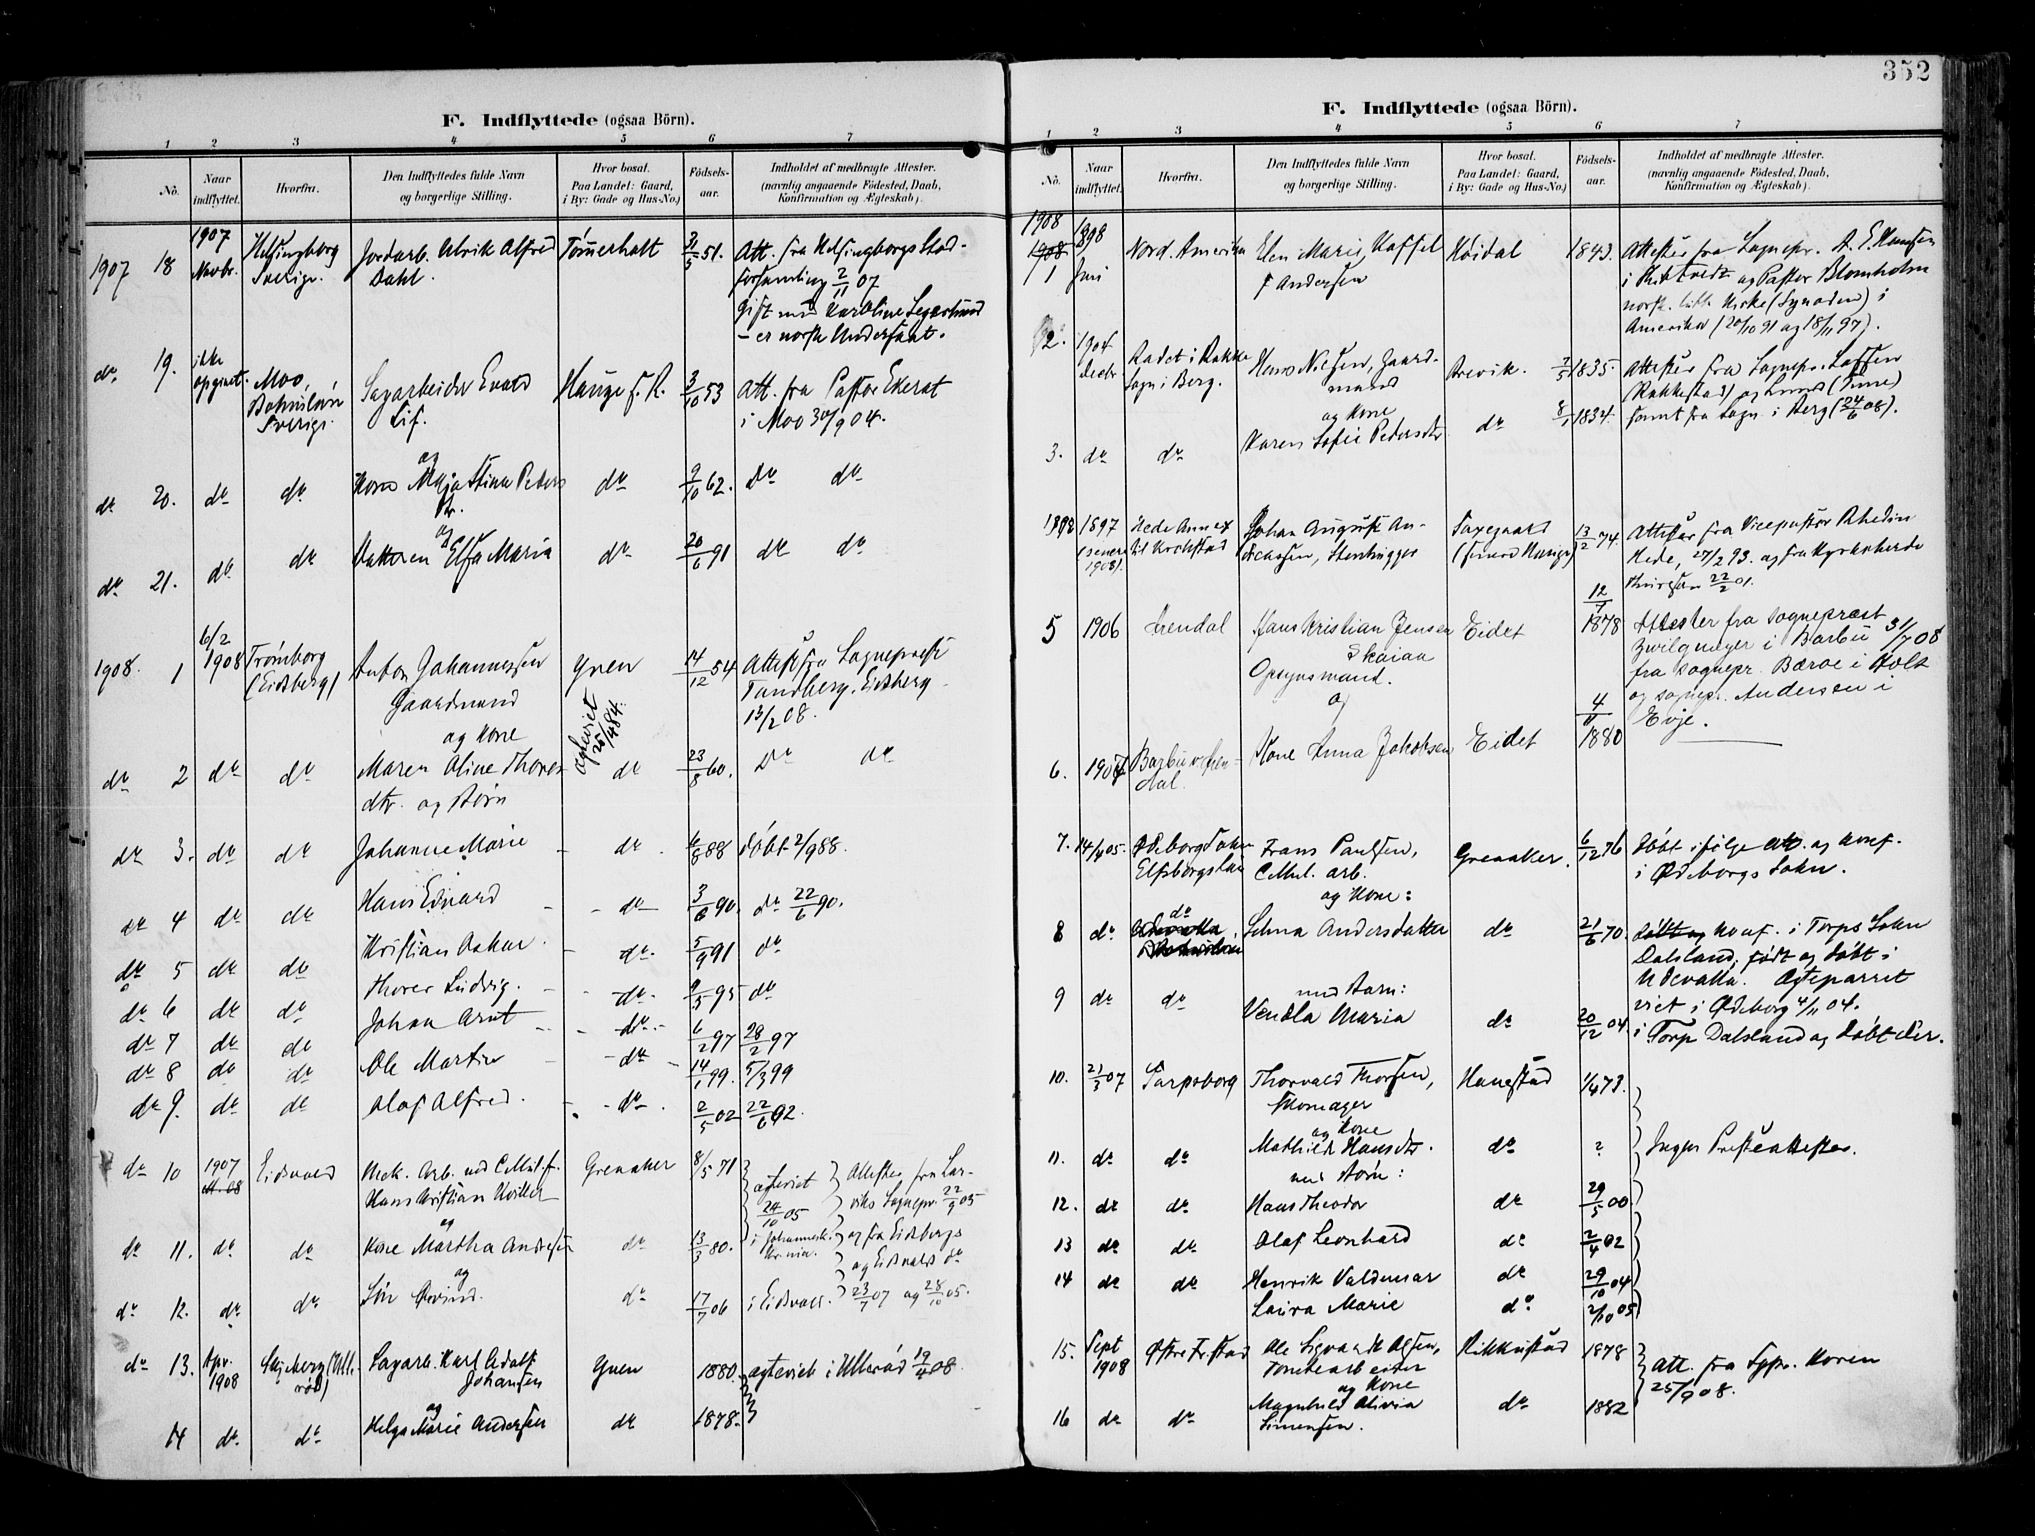 352
F. Indflyttede (ogsaa Börn).
1 2 3 4 5 6 7
No.
Naar indflyttet.
Hvorfra.
Den Indflyttedes fulde Navn
og borgerlige Stilling.
Hvor bosat.
Paa Landet: Gaard,
i By: Gade og Hus-No.)
Födsels-
aar.
Indholdet af medbragte Attester.
(navnlig angaaende Födested, Daab,
Konfirmation og Ægteskab).
1907 18 1907 Novbr. Helsingborg Sverige. Jordarb. Ulrik Alfred Dahl. Tömerholt 31/5 51. Att. fra Helsingborgs Stads-
forsamling 2/11 07
Gift med Karoline
- er norsk Undersaat.
do 19. ikke opgivet. Moo, Bohuslän Sverige. Sagarbeider Evald Lif. Hauge f. R. 3/10 53 Att. fra Pastor Ekerot
i Moo 30/9 04.
do 20. do do og
Kone Maja Stina Peters
dtr. do 9/10 62. Do do
do 21. do do og
Datteren Elsa Maria do 20/6 91 do do
1908. 1 6/2 1908 Trömborg (Eidsberg) Anton Johannessen
Gaardmand
og Kone Gren 14/12 54 Attest fra Sogneprest
Tandberg, Eidsberg
13/2 08.
ægteviet 25/4 84.
do 2 do do Maren Oline Thores
dtr. og Börn do 23/8 60. Do do
do 3. do do Johanne Marie do. 4/8 88 döbt 2/9 88.
do 4 do do Hans Edvard do 3/6 90. do 22/6 90.
do 5 do do Kristian Oskar. do. 5/9 91 do
do 6 do do Thorer Ludvig. do. 9/5 95 do
do 7 do do Johan Arnt do. 6/2 97 28/2 97
do 8 do do Ole Martin do 14/1 99. 5/3 99
do 9. do do Olaf Alfred. do. 2/5 02 22/6 02.
do 10 1907 Eidsvold Mek. Arb. ved Cellul.f.
Hans Kristian Kvitter Greaaker 8/5 71 ægteviet
24/10 05
i Johannesk.
Kr.nia. Attester fra Lar-
viks Sognepr. 22/9 05
og fra Eidsbergs
og Eidsvolds do
do 11. do do og
Kone Martha Andresen do 13/3 80.
do 12. do do og
Sön Öivind. do 17/7 06 i Eidsvoll. 23/7 07 og 28/10 05.
do 13. Apr. 1908 Skjeberg (Ulle-
röd) Sagarb. Karl Adolf
Johansen Gren 1880. ægteviet i Ulleröd 19/4 08.
14 do do og
Helga Marie Andersen do 1878.
F. Indflyttede (ogsaa Börn).
1 2 3 4 5 6 7
No.
Naar
indflyttet.
Hvorfra.
Den Indflyttedes fulde Navn
og borgerlige Stilling.
Hvor bosat.
Paa Landet: Gaard,
i By: Gade og Hus-No.)
Födsels-
aar.
Indholdet af medbragte Attester.
(navnlig angaaende Födested, Daab,
Konfirmation og Ægteskab).
1908
1908 1 1898 Juni Nord. Amerika Elen Marie Kaffel
f Andersen Höidal 1843. Attester fra Sognepr. A. E. Hansen
i og Pastor Blomholm
norsk luth. Kirke (Synoden) i
Amerika (20/10 91 og 18/11 97).
2. 1904 Decbr Radet i Rakke
sogn i Berg. Hans Nielsen, Gaard-
mand
og Kone Brevik. 7/5 1835. Attester fra Sognepr. Lassen
(Rakkestad) og Lund (Time)
samt fra Sogn. i Berg (24/6 08).
3. do do Karen Sofie Pedersdtr do 8/1 1834.
1897 (senere 1908). Hede Annex
til Johan August An-
dreassen, Stenhugger Taxegaard
(forrend Hauge) 13/2 74. Attester fra Vicepastor Rhedin
Hede, 27/2 93. og fra Kyrkoherde
22/2 01.
5 1906 Arendal Hans Kristian Jensen
Skaiaa
Opsynsmand.
og Eidet 12/7 1878 Attester fra Sogneprest
Zwilgmeyer i Barbu 31/7 08
fra sognepr. Bærøe i Holt
og sognepr. Andersen i
Evje.
6. 1907 Barbu v/Aren-
dal. Kone Anna Jakobsen Eidet 4/11 1880
7. 14/4 05. Ödeborg Sokn
Elfsborgs Län Frans Paulsen,
Cellul. arb.
og Kone: Greaaker. 6/12 76 Döbt ifölge att. og konf.
i Ödeborgs Sokn.
8 do do Selma Andersdatter do 21/6 70. döbt og konf. i Torps Sokn
Dalsland; födt og döbt i
Udevalla. Ægteparret
viet i Ödeborg 4/11 04.
9 do do med Barn:
Vendla Maria do 20/12 04. i Torp Dalsland og döbt der.
10. 21/3 07 Sarpsborg Thorvald Thorsen,
Skomager
og Kone Hanestad 1/4 73. Ingen Presteattester.
11. do do Mathilde Hansdtr.
med Börn: do ?
12. do do Hans Theodor do 29/5 00.
13 do do Olaf Leonhard do 2/4 02
14 do do Henrik Valdemar do 29/10 04
Laura Marie do 2/10 05
15. Sept 1908 Östre Fr.stad Ole Sigvardt Olsen,
Tomtearbeider
og Kone Rikkustad 1878 Att. fra Sgpr. Koren
25/9 08.
16 do do Magnhild Olivia
Simensen. do 1882